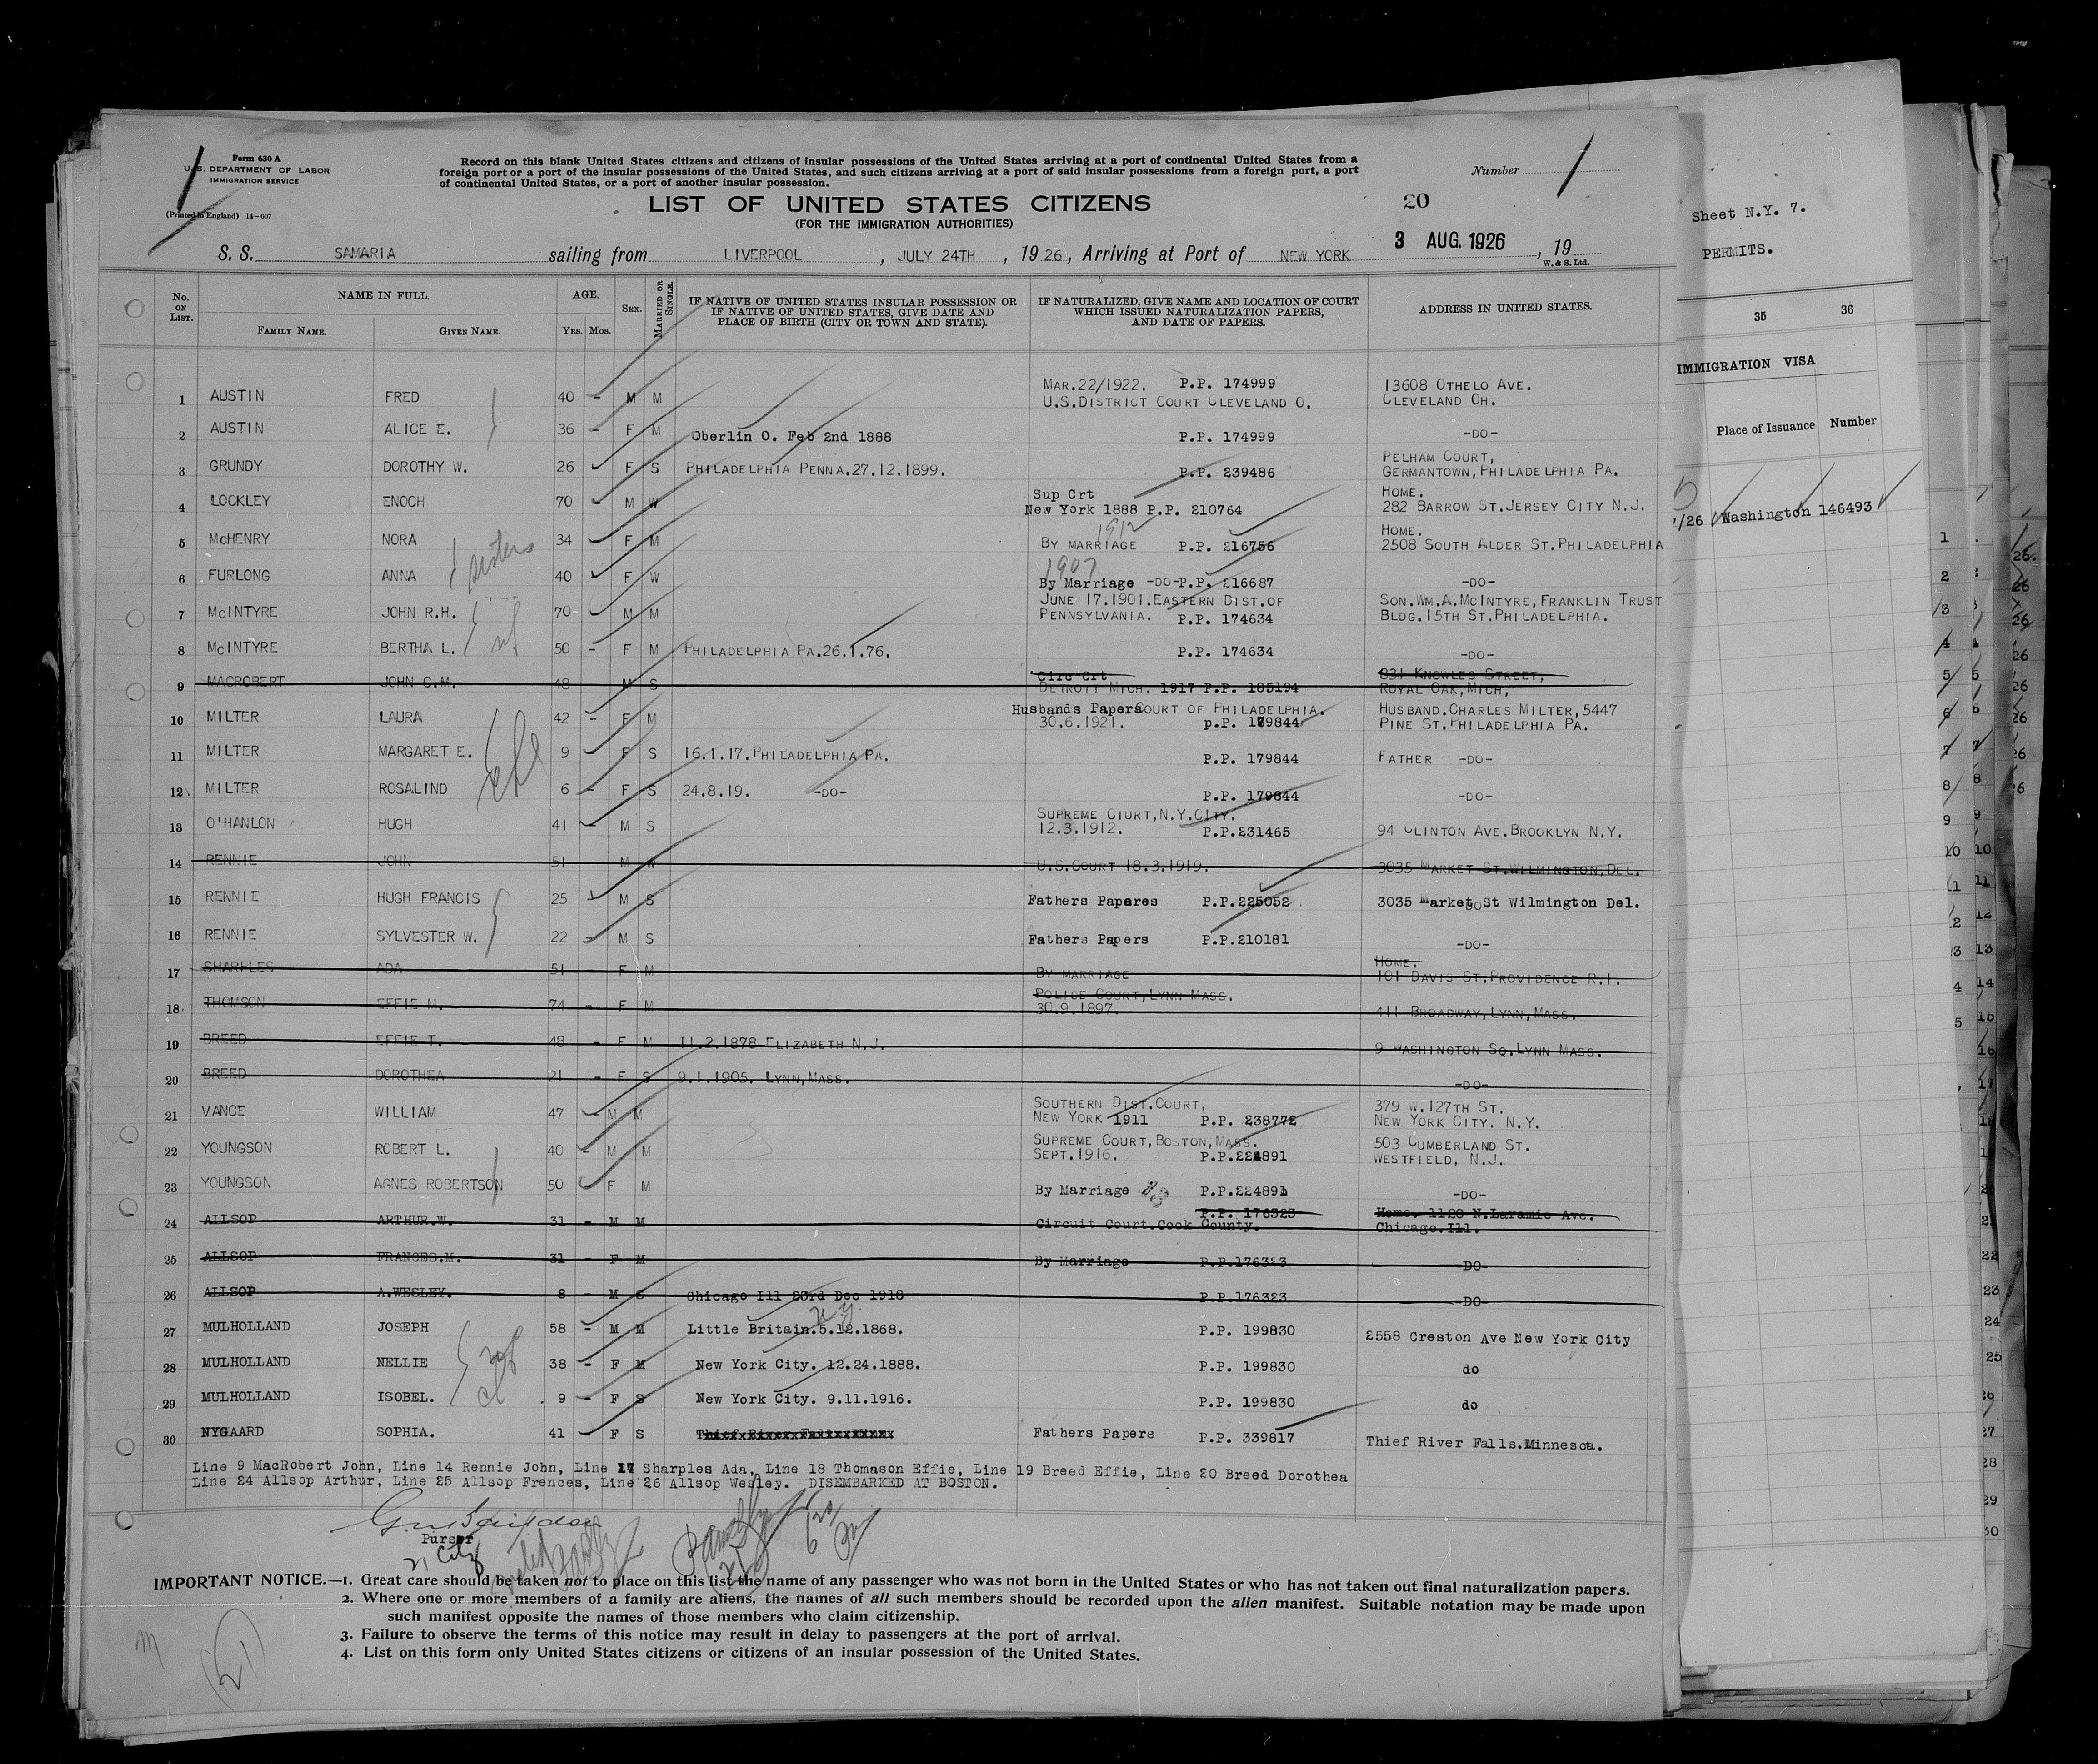 Form 630 A
U.S. DEPARTMENT OF LABOR
IMMIGRATION SERVICE
(Printed in England) 14-607
Record on this blank United States citizens and citizens of insular possessions of the United States arriving at a port of continental United States from a
foreign port or a port of the insular possessions of the United States, and such citizens arriving at a port of said insular possessions from a foreign port, a port
of continental United States, or a port of another insular possession.
Number
LIST OF UNITED STATES CITIZENS
20
(FOR THE IMMIGRATION AUTHORITIES)
S. S. SAMARIA sailing from LIVERPOOL, JULY 24TH, 1926, Arriving at Port of NEW YORK 3 AUG. 1926, 19
W. & S. Ltd.
No. ON LIST. NAME IN FULL. AGE. SEX. MARRIED OR SINGLE. IF NATIVE OF UNITED STATES INSULAR POSSESSION OR IF NATIVE OF UNITED STATES, GIVE DATE AND PLACE OF BIRTH (CITY OR TOWN AND STATE). IF NATURALIZED, GIVE NAME AND LOCATION OF COURT WHICH ISSUED NATURALIZATION PAPERS, AND DATE OF PAPERS. ADDRESS IN UNITED STATES.
FAMILY NAME. GIVEN NAME. Yrs. Mos.
1 AUSTIN FRED 40 - M M MAR.22/1922. P.P. 174999 U.S.DISTRICT COURT CLEVELAND O. 13608 OTHELO AVE. CLEVELAND OH.
2 AUSTIN ALICE E. 36 - F M Oberlin O. Feb 2nd 1888 P.P. 174999 -DO-
3 GRUNDY DOROTHY W. 26 F S PHILADELPHIA PENNA.27.12.1899. P.P. 239486 PELHAM COURT, GERMANTOWN, PHILADELPHIA PA.
4 LOCKLEY ENOCH 70 - M W Sup Crt New York 1888 P.P. 210764 HOME. 282 BARROW ST.JERSEY CITY N.J.
5 McHENRY NORA 34 F M 1912 BY MARRIAGE P.P. 216756 HOME. 2508 SOUTH ALDER ST.PHILADELPHIA
sisters
6 FURLONG ANNA 40 F W 1907 By Marriage -DO- P.P. 216687 -DO-
7 McINTYRE JOHN R.H. 70 M M JUNE 17.1901.EASTERN DIST.OF PENNSYLVANIA. P.P. 174634 SON.WM.A.McINTYRE, FRANKLIN TRUST BLDG.15TH ST.PHILADELPHIA.
8 McINTYRE BERTHA L. 50 - F M PHILADELPHIA PA.26.1.76. P.P. 174634 -DO-
9 MACROBERT JOHN C.M. 48 M S Circ Crt DETROIT MICH. 1917 P.P. 185194 831 KNOWLES STREET, ROYAL OAK, MICH,
10 MILTER LAURA 42 - F M Husbands Papers COURT OF PHILADELPHIA. 30.6.1921. p.P. 179844 HUSBAND.CHARLES MILTER, 5447 PINE ST.PHILADELPHIA PA.
11 MILTER MARGARET E. 9 F S 16.1.17.PHILADELPHIA PA. P.P. 179844 FATHER -DO-
12 MILTER ROSALIND 6 - F S 24.8.19. -DO- P.P. 179844 -DO-
13 O'HANLON HUGH 41 - M S SUPREME CIURT, N.Y.CITY. 12.3.1912. P.P.231465 94 CLINTON AVE.BROOKLYN N.Y.
14 RENNIE JOHN 51 - M W U.S.COURT 18.3.1919. 3035 MARKET ST.WILMINGTON, DEL.
15 RENNIE HUGH FRANCIS 25 M S Fathers Papares P.P.225052 3035 Market St Wilmington Del.
16 RENNIE SYLVESTER W. 22 - M S Fathers Papers P.P.210181 -DO-
17 SHARPLES ADA 51 - F M BY MARRIAGE HOME. 101 DAVIS ST.PROVIDENCE R.I.
18 THOMSON EFFIE M. 74 - F M POLICE COURT, LYNN MASS. 30.9.1897. 411 BROADWAY, LYNN, MASS.
19 BREED EFFIE T. 48 - F M 11.2.1878 ELIZABETH N.J. 9 WASHINGTON SQ.LYNN MASS.
20 BREED DOROTHEA 21 - F S 9.1.1905. LYNN, MASS. -DO-
21 VANCE WILLIAM 47 - M M SOUTHERN DIST.COURT, NEW YORK 1911 P.P. 238772 379 W.127TH ST. NEW YORK CITY. N.Y.
22 YOUNGSON ROBERT L. 40 - M M SUPREME COURT, BOSTON, MASS. SEPT.1916. P.P.224891 503 CUMBERLAND ST. WESTFIELD, N.J.
23 YOUNGSON AGNES ROBERTSON 50 F M By Marriage P.P.224891 -DO-
24 ALLSOP ARTHUR.W. 31 - M M P.P. 176323 Circuit Court.Cook County. Home. 1120 N.Laramie Ave. Chicago.Ill.
25 ALLSOP FRANCES.M. 31 - F M By Marriage P.P.176323 -DO-
26 ALLSOP A.WESLEY. 8 - M S Chicago Ill 23rd Dec 1918 P.P.176323 -DO-
27 MULHOLLAND JOSEPH 58 - M M Little Britain.5.12.1868. N.Y. P.P. 199830 2558 Creston Ave New York City
28 MULHOLLAND NELLIE 38 - F M New York City. 12.24.1888. P.P. 199830 do
29 MULHOLLAND ISOBEL. 9 - F S New York City. 9.11.1916. P.P. 199830 do
30 NYGAARD SOPHIA. 41 - F S Fathers Papers P.P. 339817 Thief River Falls.Minnesota.
Line 9 MacRobert John, Line 14 Rennie John, Line 17 Sharples Ada, Line 18 Thomason Effie, Line 19 Breed Effie, Line 20 Breed Dorothea
Line 24 Allsop Arthur, Line 25 Allsop Frences, Line 26 Allsop Wesley. DISEMBARKED AT BOSTON.
Purser
IMPORTANT NOTICE.—1. Great care should be taken not to place on this list the name of any passenger who was not born in the United States or who has not taken out final naturalization papers.
2. Where one or more members of a family are aliens, the names of all such members should be recorded upon the alien manifest. Suitable notation may be made upon
such manifest opposite the names of those members who claim citizenship.
3. Failure to observe the terms of this notice may result in delay to passengers at the port of arrival.
4. List on this form only United States citizens or citizens of an insular possession of the United States.
(21)
Sheet N.Y. 7.
PERMITS.
35 36
IMMIGRATION VISA
Place of Issuance Number
/26 Washington 146493